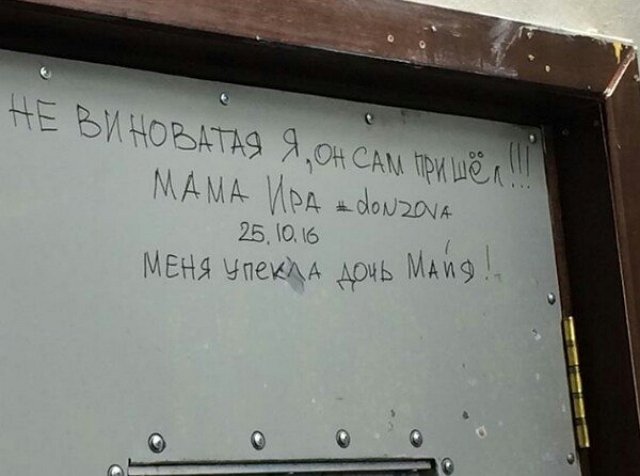 НЕ ВИНОВАТАЯ Я, ОН САМ ПРИШЁЛ!!!
МАМА ИРА #donzova
25.10.16
МЕНЯ УПЕКЛА ДОЧЬ МАЙЯ!